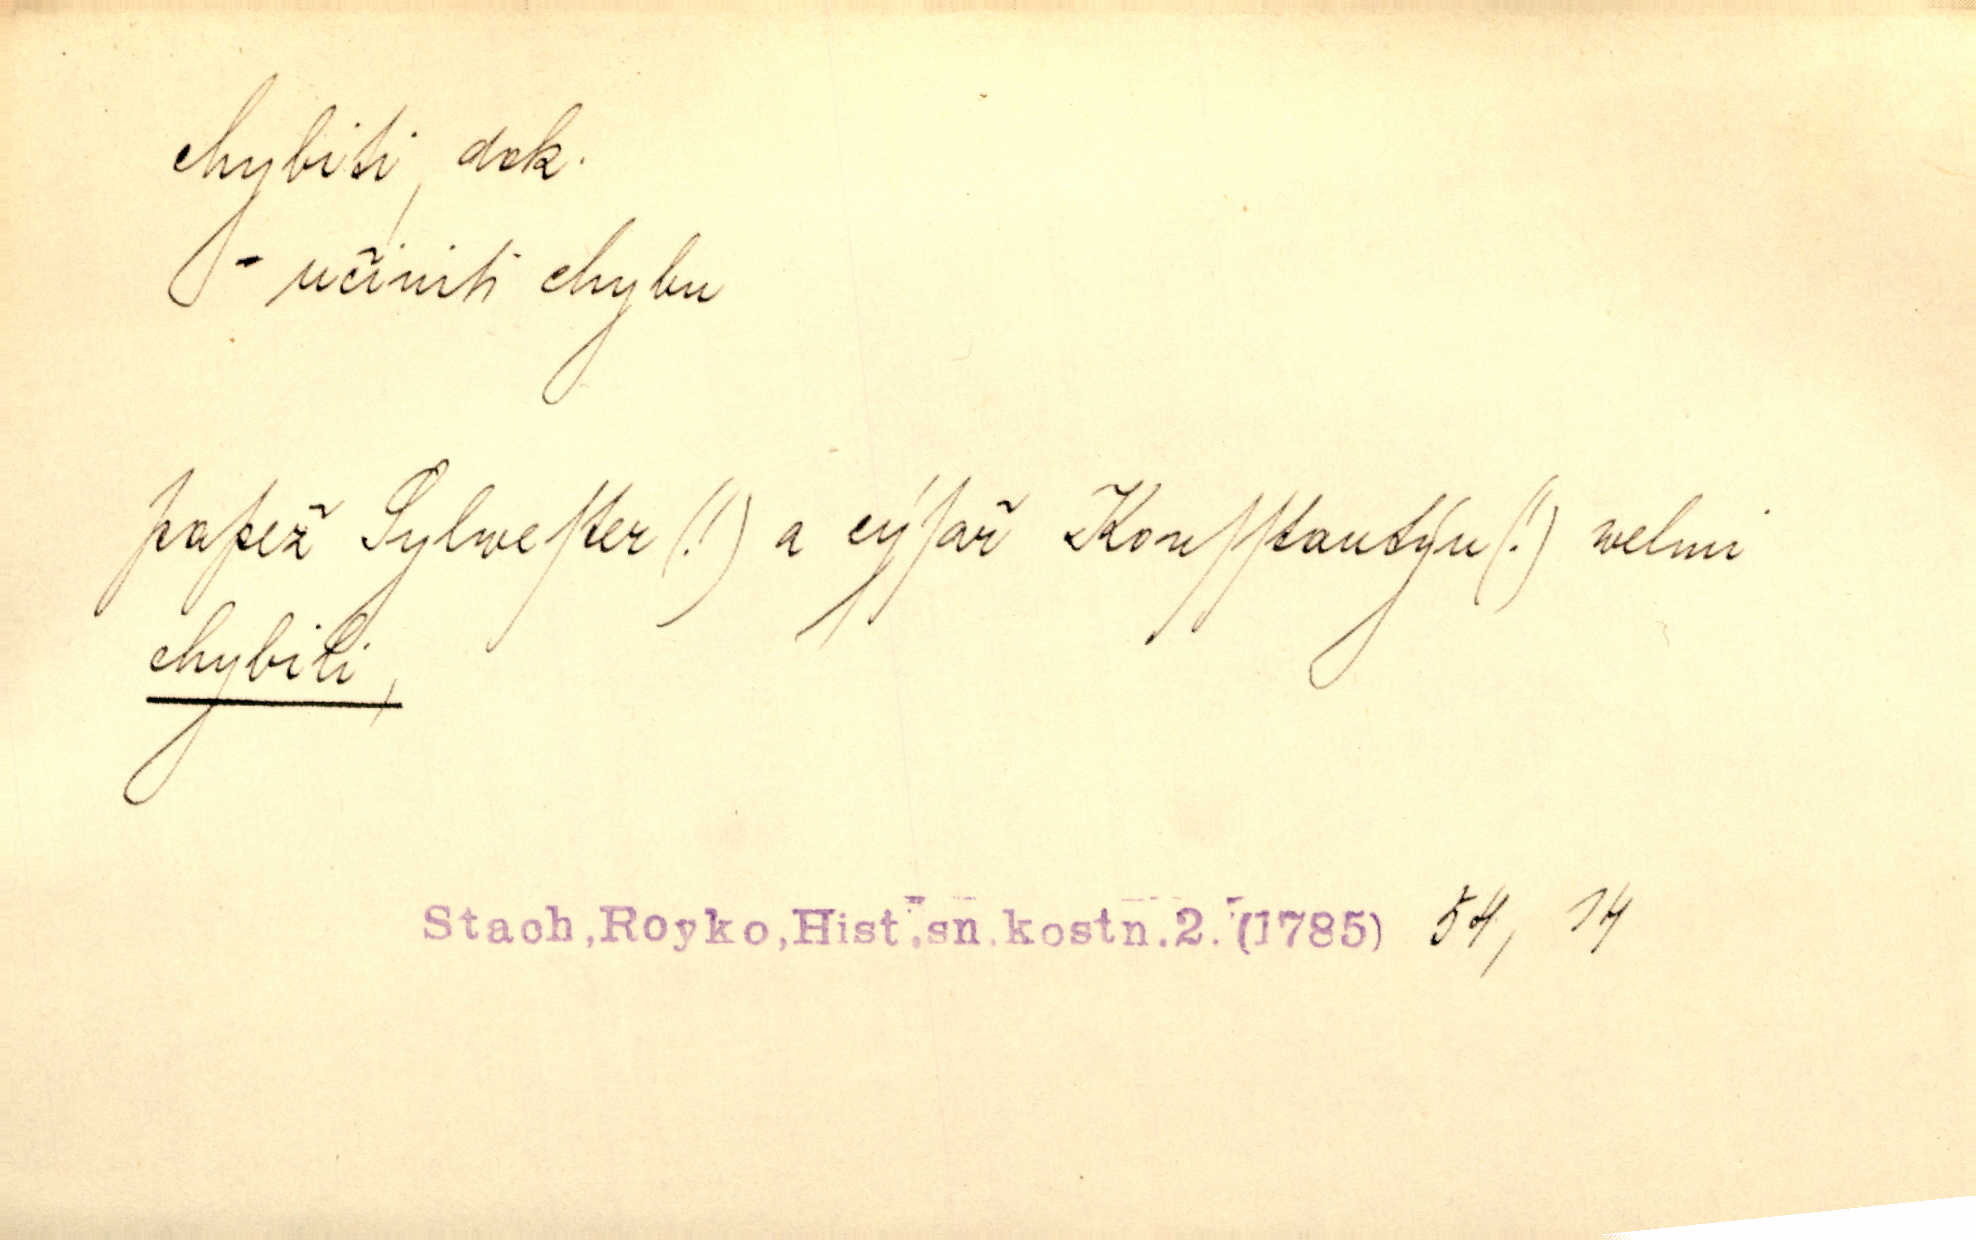 chybiti, dok.
- učiniti chybu
papež Sylweſter (!) a cýſař Konſſtantýn (!) welmi
chybili,
Stach,Royko,Hist.sn.kostn.2.(1785) 54, 14